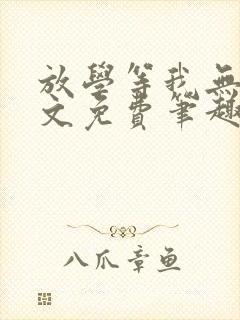 放學等我無
文免費筆趣
八爪章鱼